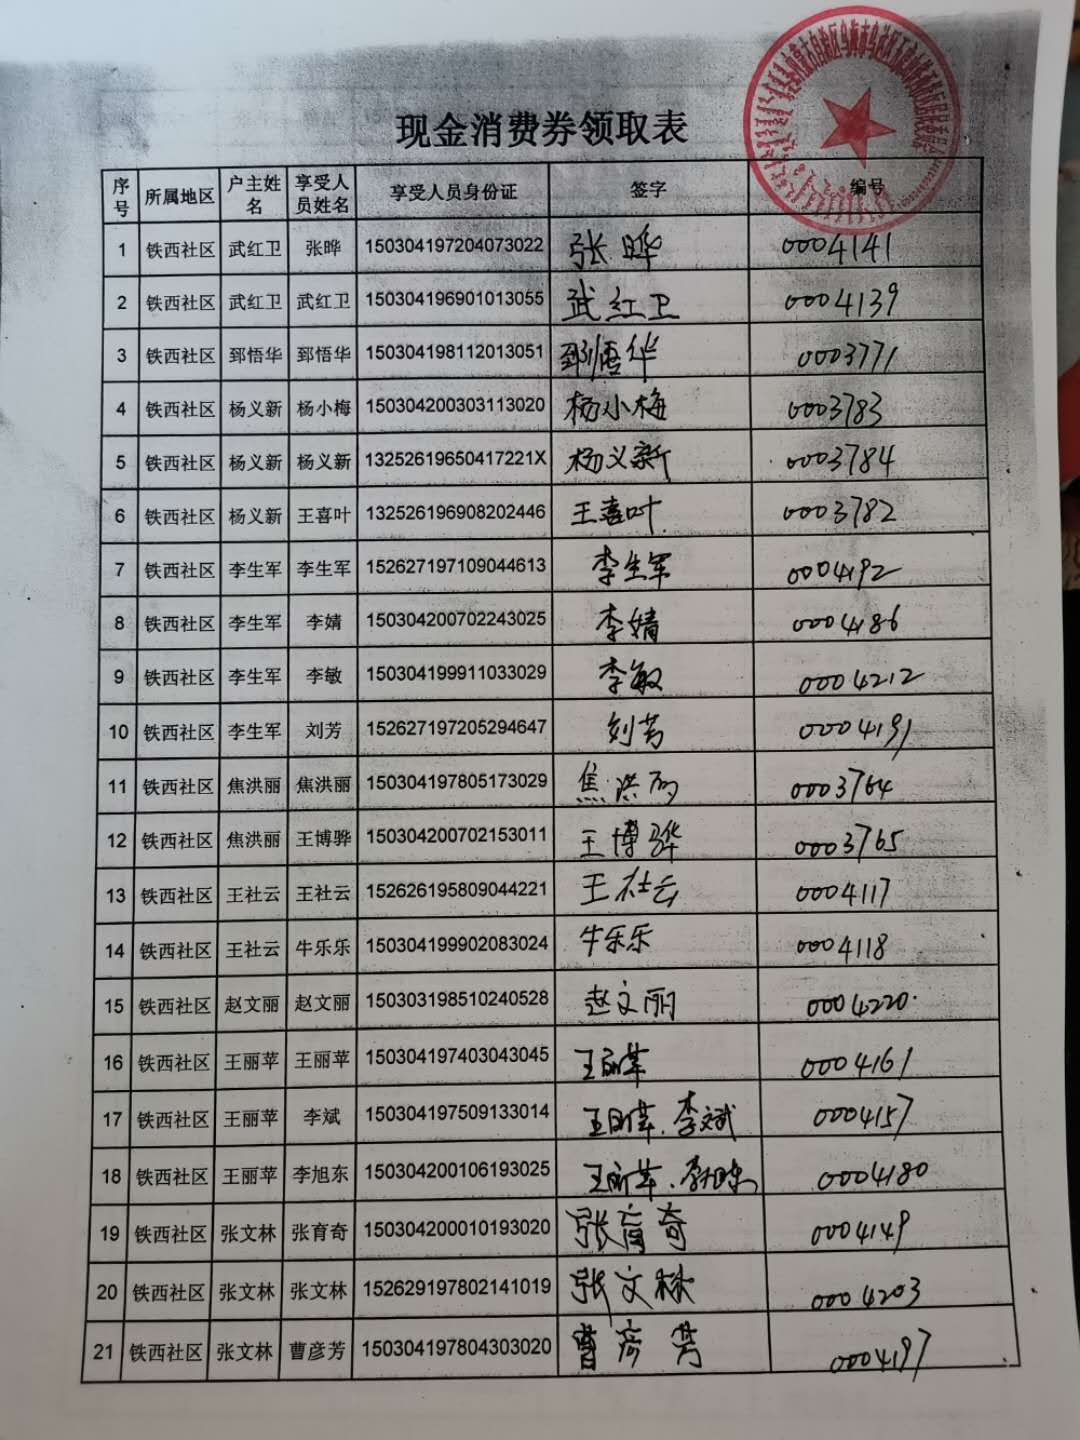 现金消费券领取表
序号 所属地区 户主姓名 享受人员姓名 享受人员身份证 签字 编号
1 铁西社区 武红卫 张晔 150304197204073022 张晔 0004141
2 铁西社区 武红卫 武红卫 150304196901013055 武红卫 0004139
3 铁西社区 郅悟华 郅悟华 150304198112013051 郅悟华 0003771
4 铁西社区 杨义新 杨小梅 150304200303113020 杨小梅 0003783
5 铁西社区 杨义新 杨义新 13252619650417221X 杨义新 0003784
6 铁西社区 杨义新 王喜叶 132526196908202446 王喜叶 0003782
7 铁西社区 李生军 李生军 152627197109044613 李生军 0004192
8 铁西社区 李生军 李婧 150304200702243025 李婧 0004186
9 铁西社区 李生军 李敏 150304199911033029 李敏 0004212
10 铁西社区 李生军 刘芳 152627197205294647 刘芳 0004191
11 铁西社区 焦洪丽 焦洪丽 150304197805173029 焦洪丽 0003764
12 铁西社区 焦洪丽 王博骅 150304200702153011 王博骅 0003765
13 铁西社区 王社云 王社云 152626195809044221 王社云 0004117
14 铁西社区 王社云 牛乐乐 150304199902083024 牛乐乐 0004118
15 铁西社区 赵文丽 赵文丽 150303198510240528 赵文丽 0004220
16 铁西社区 王丽苹 王丽苹 150304197403043045 王丽苹 0004161
17 铁西社区 王丽苹 李斌 150304197509133014 王丽苹.李斌 0004157
18 铁西社区 王丽苹 李旭东 150304200106193025 王丽苹.李旭东 0004180
19 铁西社区 张文林 张育奇 150304200010193020 张育奇 0004149
20 铁西社区 张文林 张文林 152629197802141019 张文林 0004203
21 铁西社区 张文林 曹彦芳 150304197804303020 曹彦芳 0004197